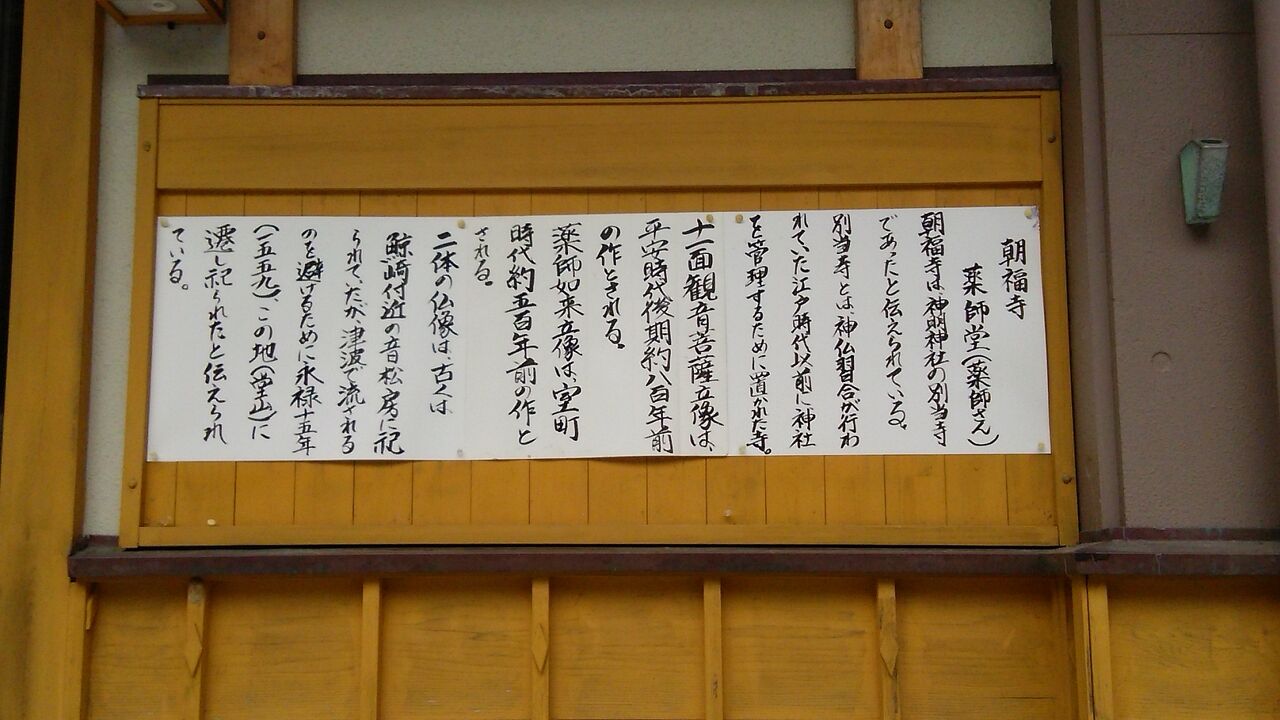 朝福寺
薬師堂(薬師さん)
朝福寺は神明神社の別当寺
であったと伝えられている。
別当寺とは、神仏習合が行わ
れていた江戸時代以前に神社
を管理するために置かれた寺。
十一面観音菩薩立像は、
平安時代後期約八百年前
の作とされる。
薬師如来立像は、室町
時代約五百年前の作と
される。
二体の仏像は、古くは
鯨崎付近の音松房に祀
られていたが、津波で流される
のを避けるために永禄十五年
(一五五九)、この地(堂山)に
遷し祀られたと伝えられ
ている。